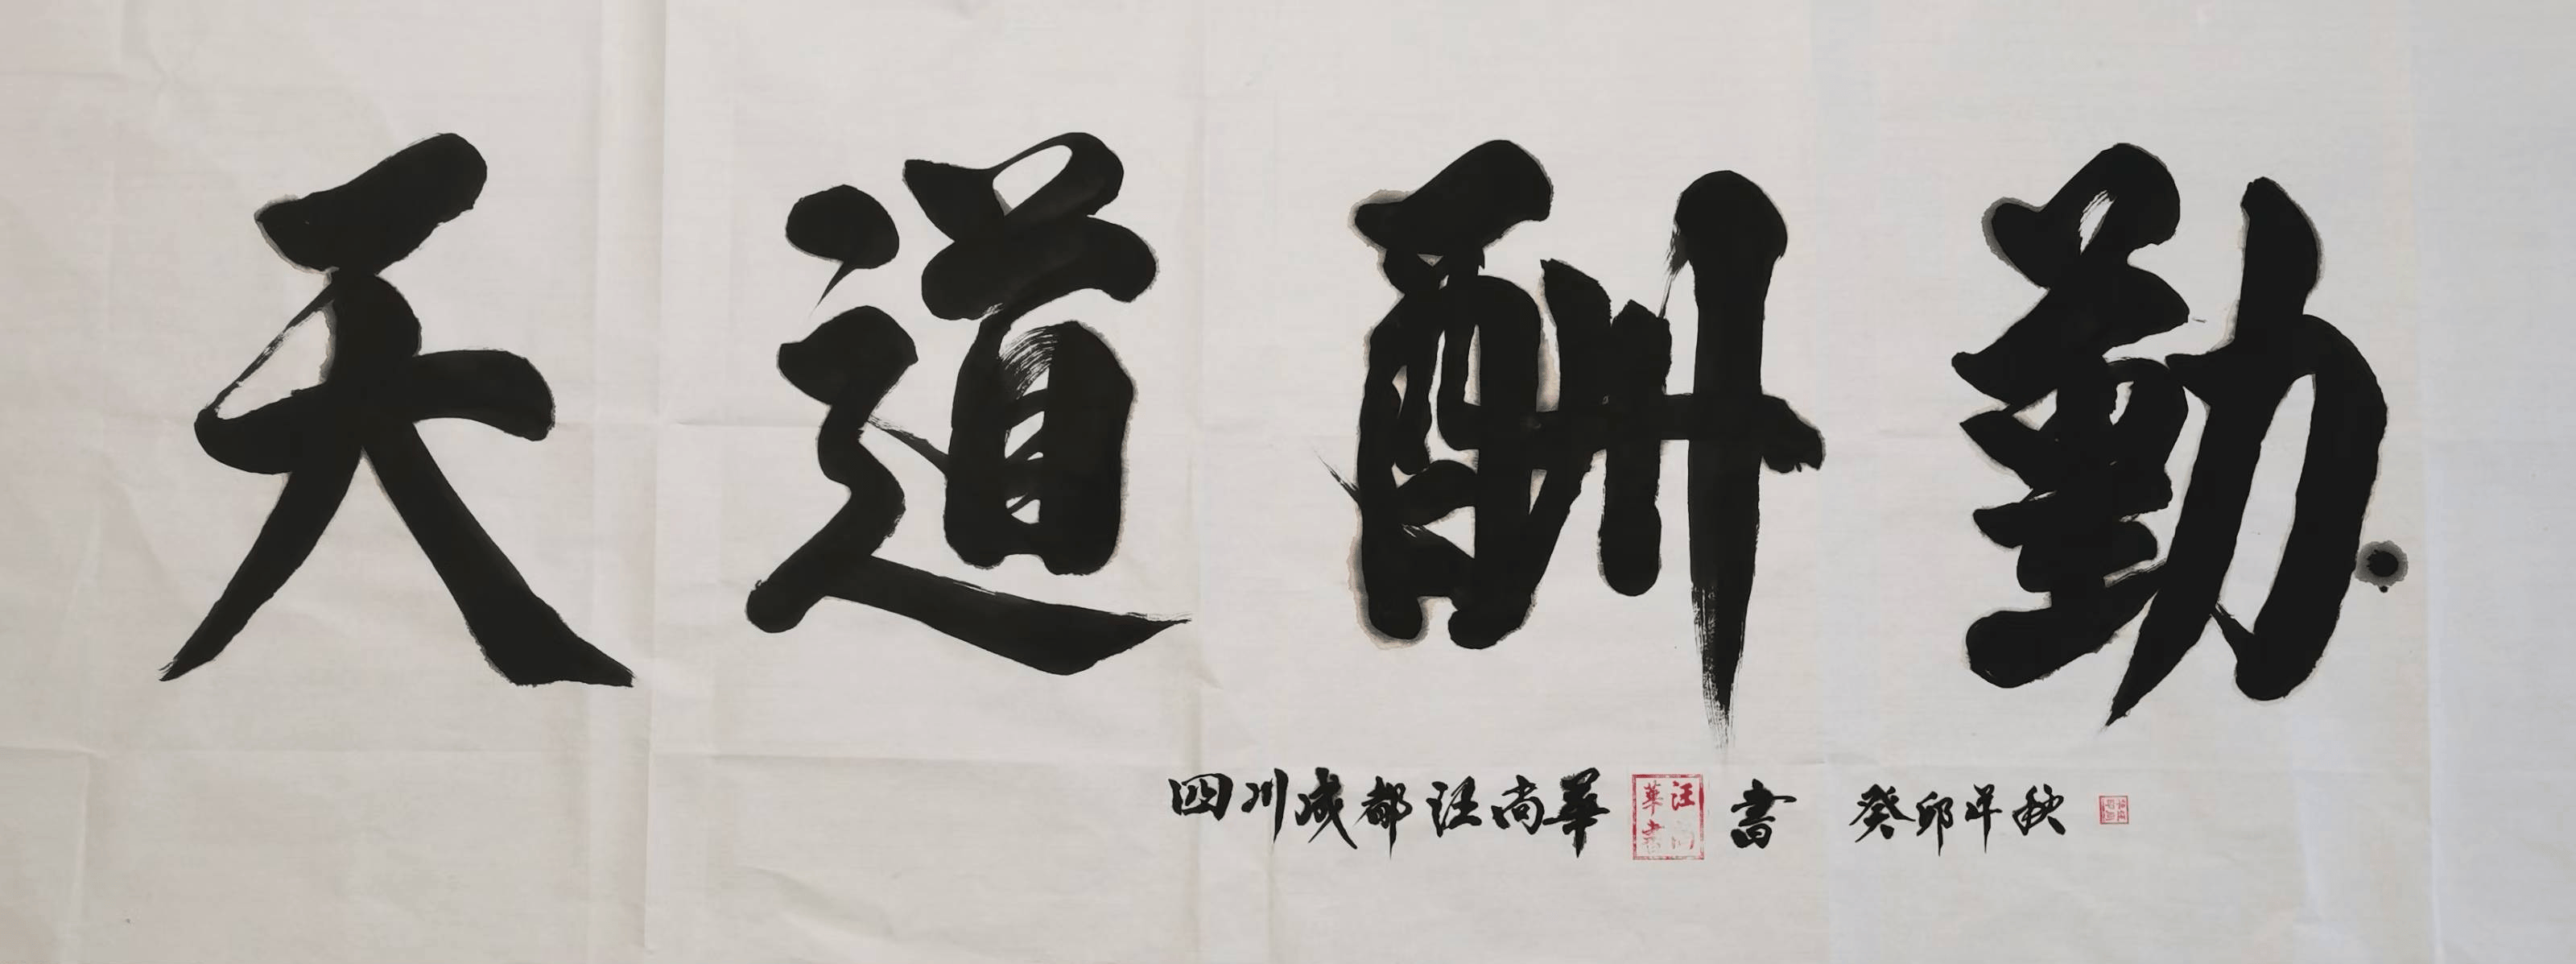 天道酬勤
四川成都汪尚華 書 癸卯年秋
汪尚華書